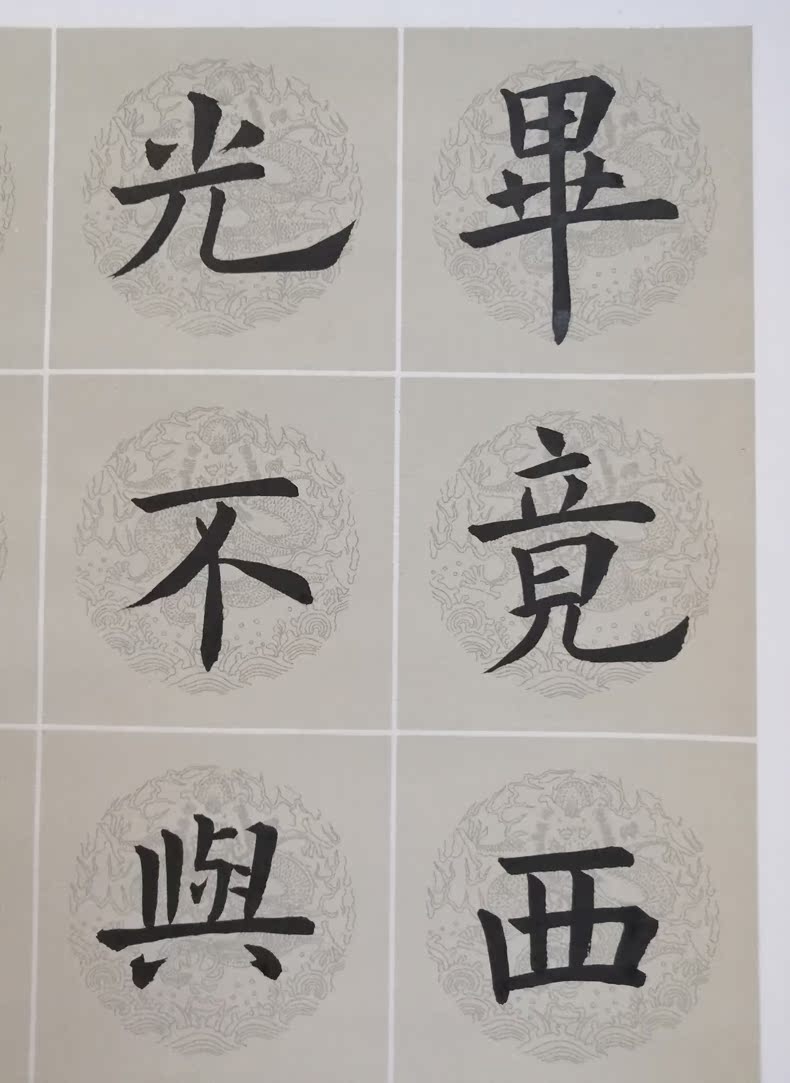 畢竟西
光不與